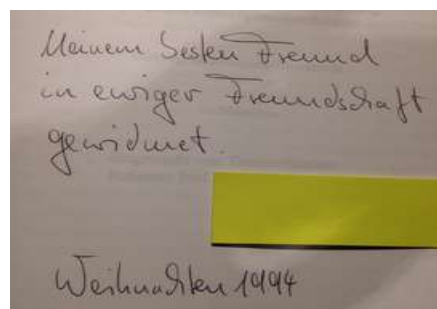 Meinem besten Freund
in ewiger Freundschaft
gewidmet.
Weihnachten 1994